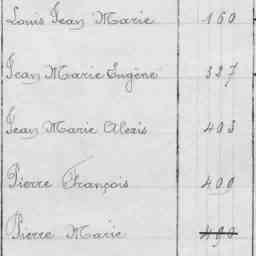 Louis Jean Marie 160
Jean Marie Eugène 327
Jean Marie Alexis 403
Pierre François 400
Pierre Marie 490